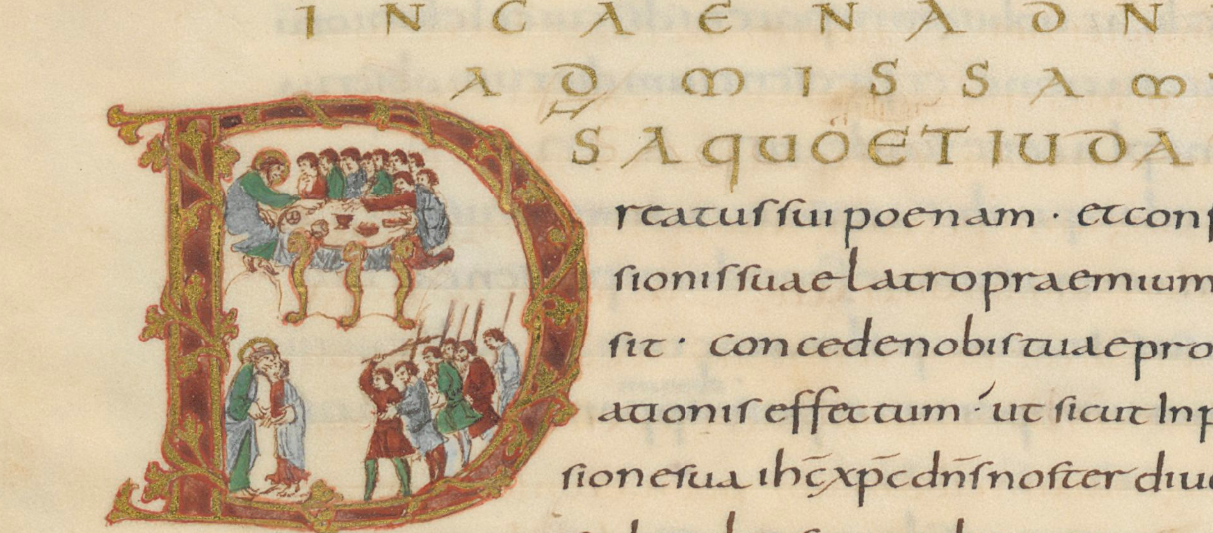 IN CAENA DN
AD MISSAM
DS A quo ET IUDA
reatus sui poenam · et cons
sionis suae latro praemium
sit · concede nobis tuae pro
ationis effectum · ut sicut In p
sione sua ihc̄ xpc̄ dn̄s noster diu